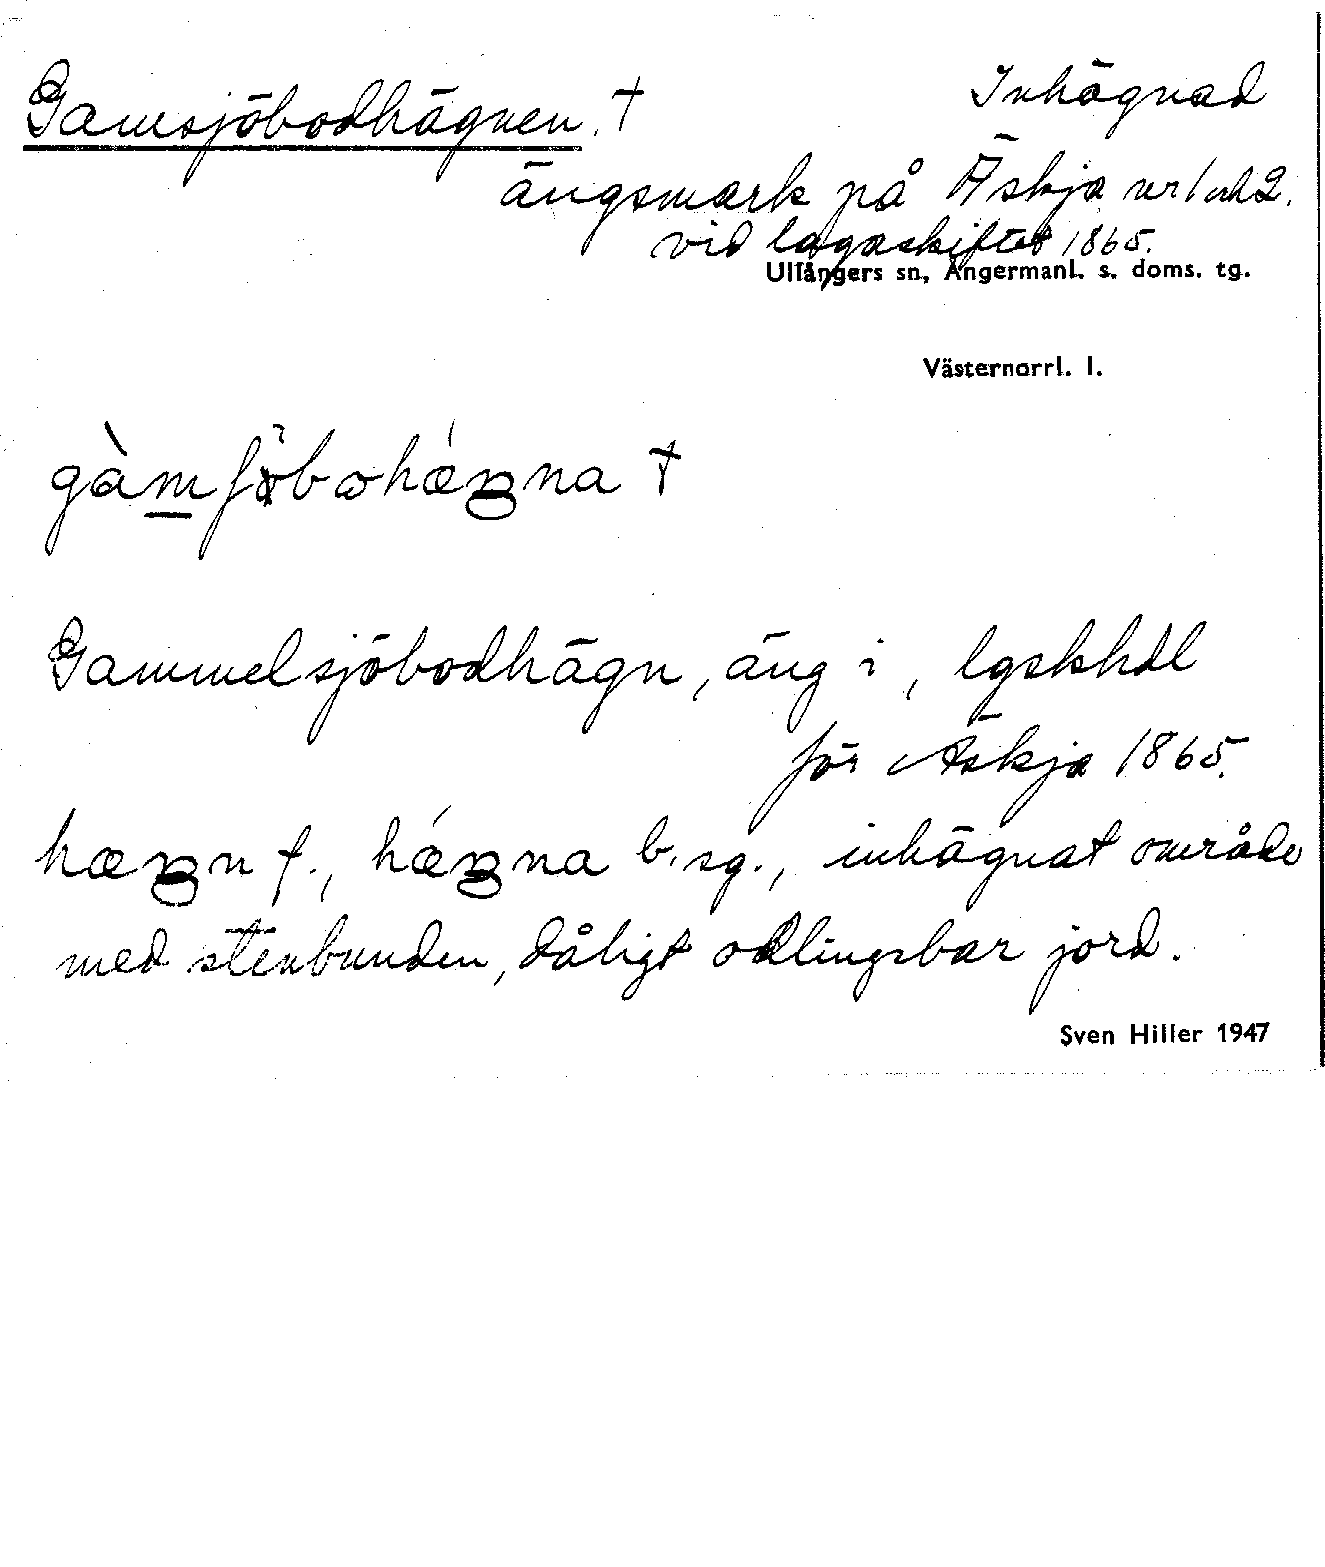 Gamsjöbodhägnen. † Inhägnad
ängsmark på Äskja nr 1 och 2.
vid lagaskiftet 1865.
Ullångers sn, Ångermanl. s. doms. tg.
Västernorrl. l.
Gammelsjöbodhägn, äng i, lgskhdl
för Äskja 1865.
hæŋn f., hǽŋna b. sg., inhägnat område
med stenbunden, dåligt odlingsbar jord.
Sven Hiller 1947